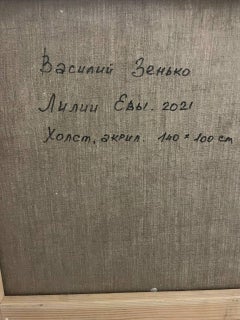 Василий Зенько
Лилии Евы. 2021
Холст, акрил. 140 × 100 см